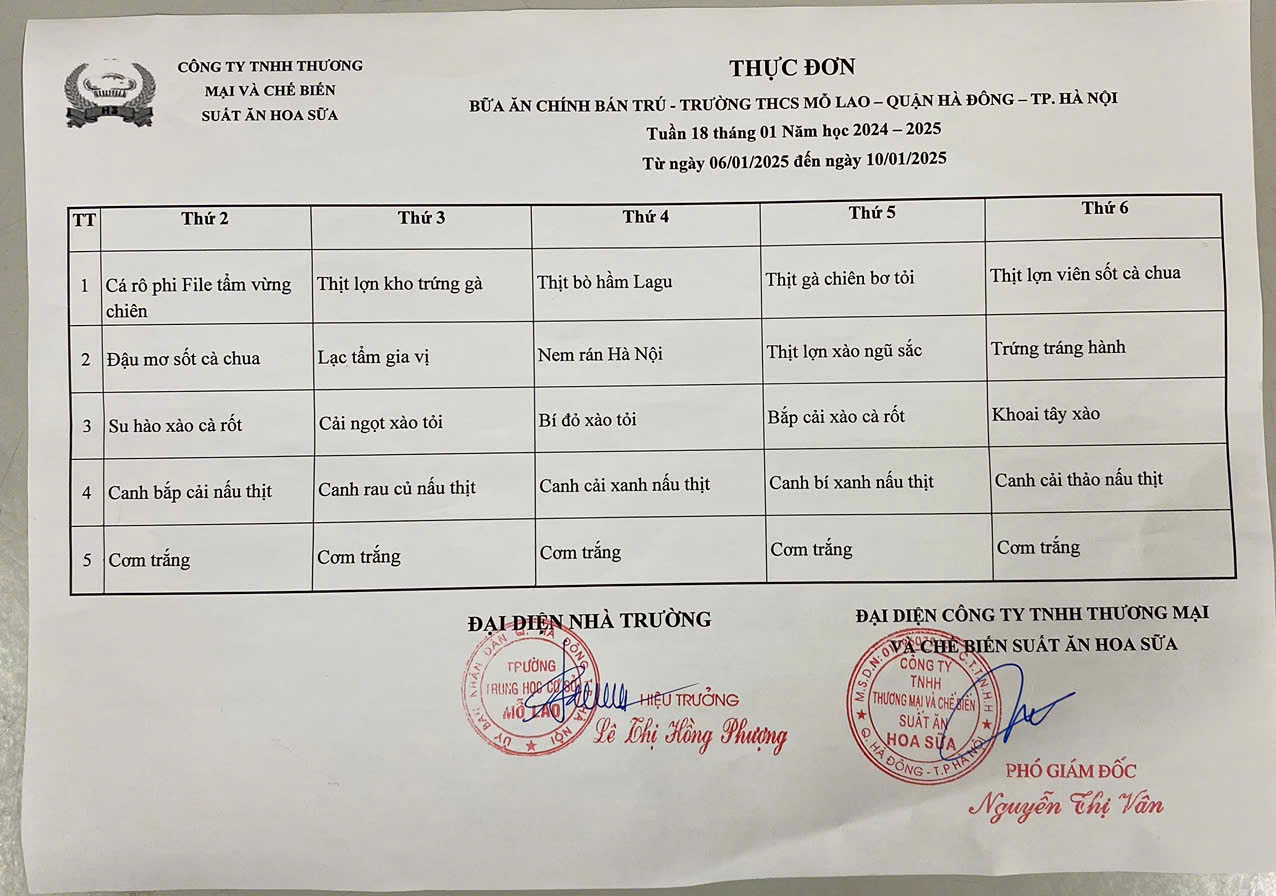 CÔNG TY TNHH THƯƠNG
MẠI VÀ CHẾ BIẾN
SUẤT ĂN HOA SỮA
HS
THỰC ĐƠN
BỮA ĂN CHÍNH BÁN TRÚ - TRƯỜNG THCS MỖ LAO – QUẬN HÀ ĐÔNG – TP. HÀ NỘI
Tuần 18 tháng 01 Năm học 2024 – 2025
Từ ngày 06/01/2025 đến ngày 10/01/2025
TT Thứ 2 Thứ 3 Thứ 4 Thứ 5 Thứ 6
1 Cá rô phi File tẩm vừng chiên Thịt lợn kho trứng gà Thịt bò hầm Lagu Thịt gà chiên bơ tỏi Thịt lợn viên sốt cà chua
2 Đậu mơ sốt cà chua Lạc tẩm gia vị Nem rán Hà Nội Thịt lợn xào ngũ sắc Trứng tráng hành
3 Su hào xào cà rốt Cải ngọt xào tỏi Bí đỏ xào tỏi Bắp cải xào cà rốt Khoai tây xào
4 Canh bắp cải nấu thịt Canh rau củ nấu thịt Canh cải xanh nấu thịt Canh bí xanh nấu thịt Canh cải thảo nấu thịt
5 Cơm trắng Cơm trắng Cơm trắng Cơm trắng Cơm trắng
ĐẠI DIỆN NHÀ TRƯỜNG
ỦY BAN NHÂN DÂN Q. HÀ ĐÔNG T.P HÀ NỘI
TRƯỜNG
TRUNG HỌC CƠ SỞ
MỖ LAO
HIỆU TRƯỞNG
Lê Thị Hồng Phượng
ĐẠI DIỆN CÔNG TY TNHH THƯƠNG MẠI
VÀ CHẾ BIẾN SUẤT ĂN HOA SỮA
M.S.D.N: C.T.T.N.H.H
CÔNG TY
TNHH
THƯƠNG MẠI VÀ CHẾ BIẾN
SUẤT ĂN
HOA SỮA
Q. HÀ ĐÔNG - T.P HÀ NỘI
PHÓ GIÁM ĐỐC
Nguyễn Thị Vân